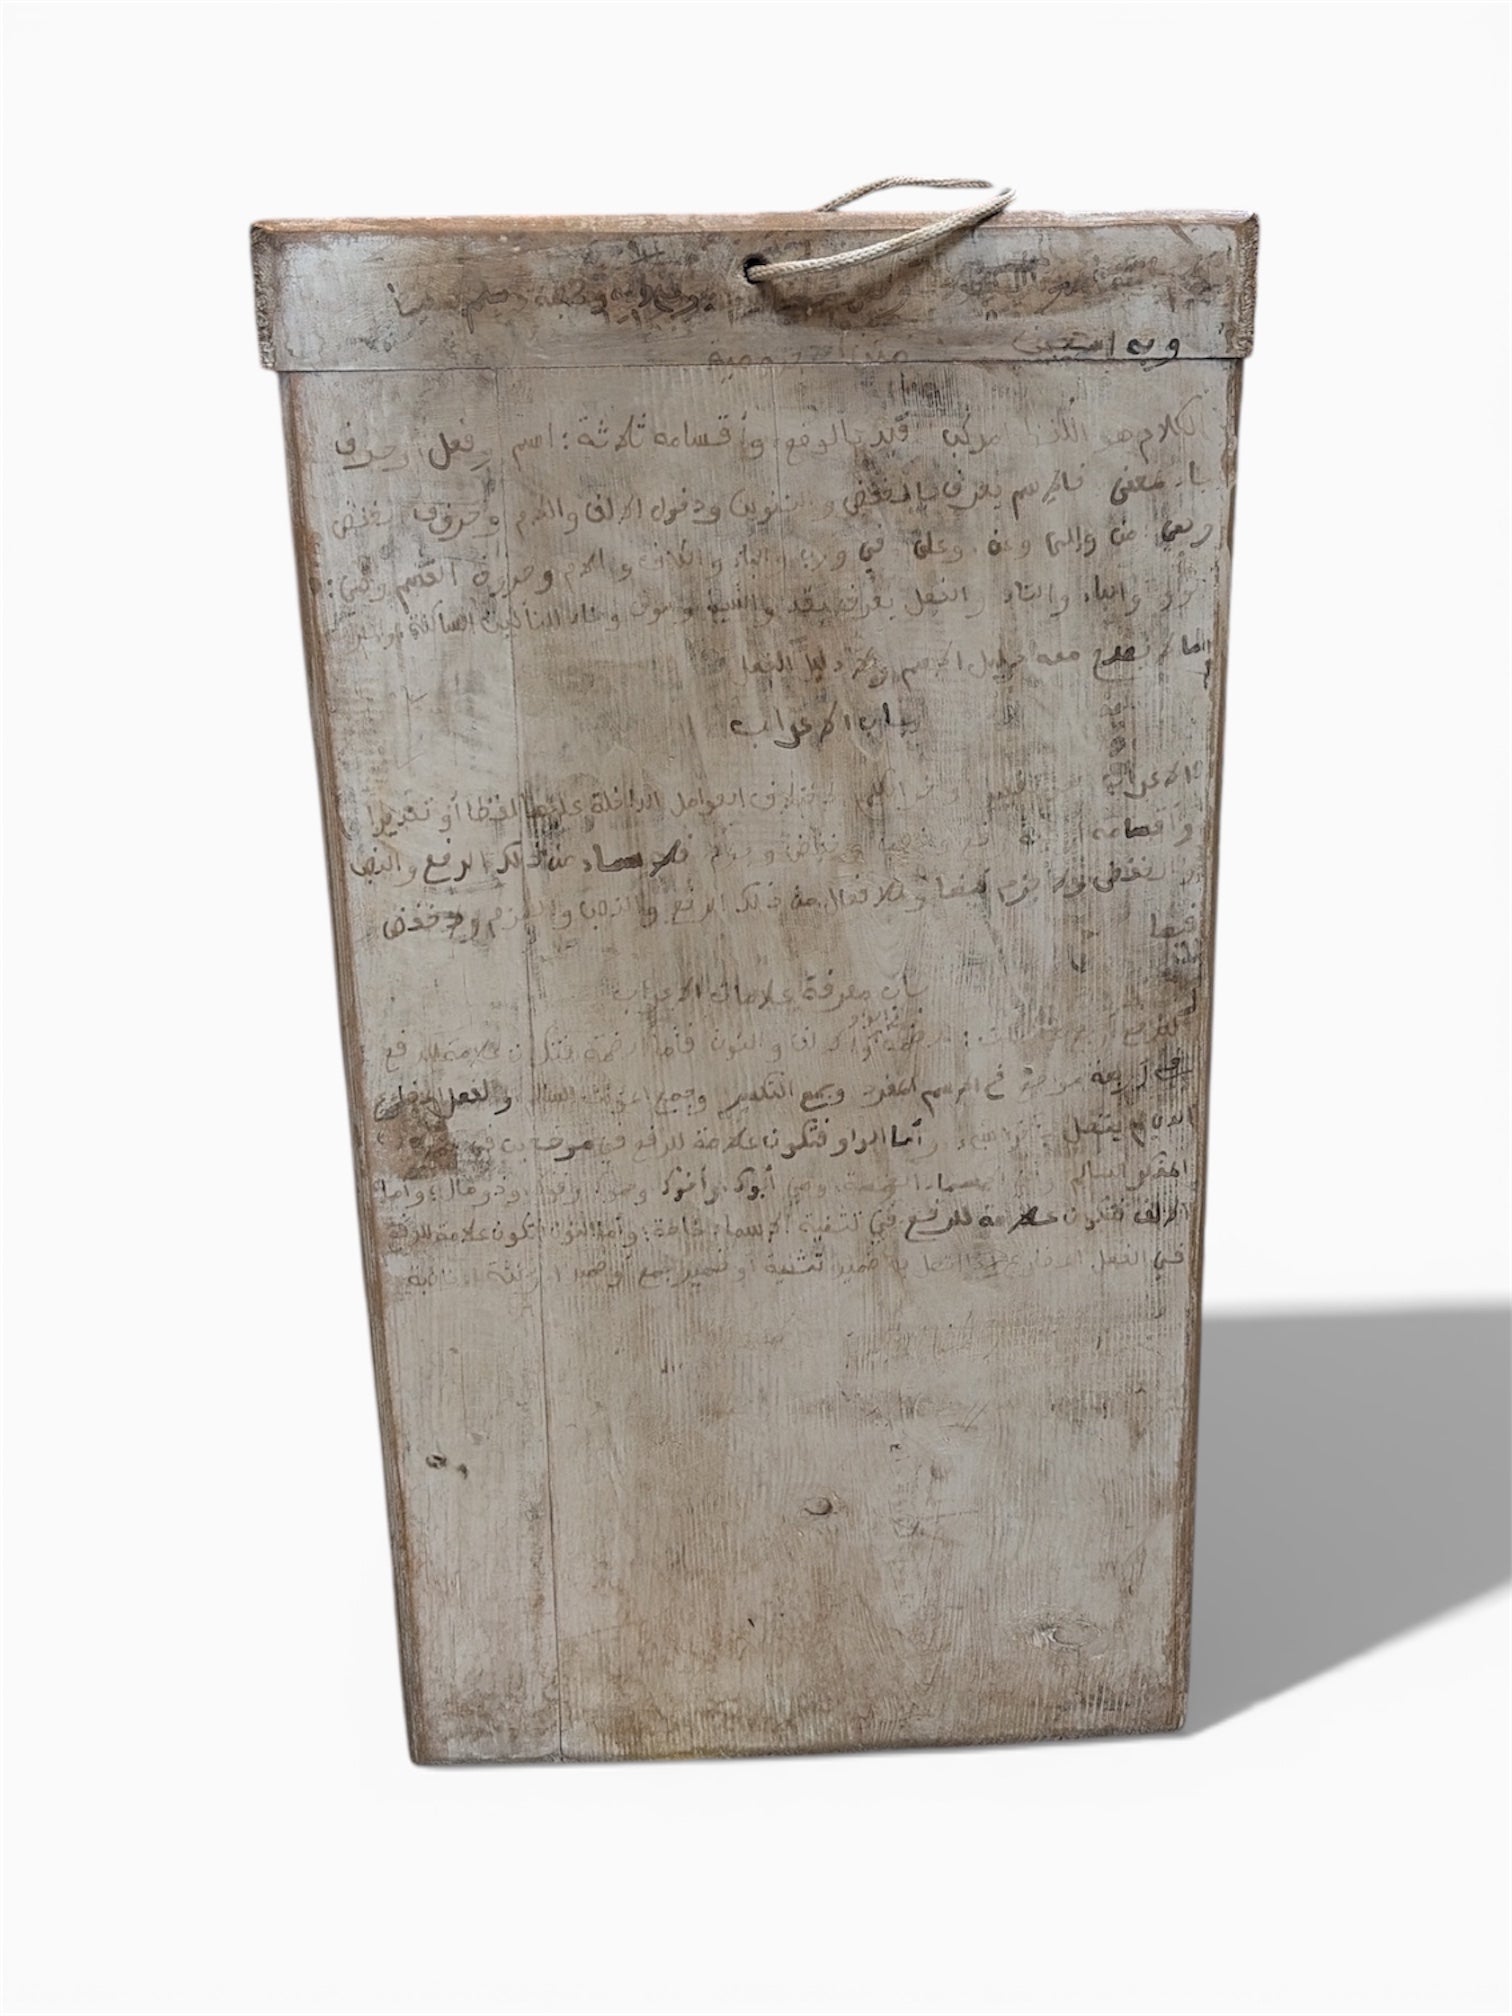 وصحبه وسلم
وبه استعين
الكلام هو اللفظ المركب المفيد بالوضع، وأقسامه ثلاثة: اسم وفعل وحرف
جاء لمعنى فالاسم يعرف بالخفض والتنوين ودخول الالف واللام وحروف الخفض
وهي من وإلى وعن وعلى وفي ورب والباء والكاف واللام وحروف القسم وهي:
الواو والباء والتاء والفعل يعرف بقد والسين وسوف وتاء التأنيث الساكنة والحرف
ما لا يصلح معه دليل الاسم ولا دليل الفعل
باب الاعراب
الاعراب هو تغيير أواخر الكلم لاختلاف العوامل الداخلة عليها لفظا أو تقديرا
وأقسامه أربعة رفع ونصب وخفض وجزم فللاسماء من ذلك الرفع والنصب
والخفض ولا جزم فيها وللافعال من ذلك الرفع والنصب والجزم ولا خفض
فيها
باب معرفة علامات الاعراب
للرفع أربع علامات: الضمة والواو والالف والنون فأما الضمة فتكون علامة للرفع
في أربعة مواضع في الاسم المفرد وجمع التكسير وجمع المؤنث السالم والفعل المضارع
الذي لم يتصل بآخره شيء وأما الواو فتكون علامة للرفع في موضعين في جمع
المذكر السالم وفي الاسماء الخمسة وهي أبوك وأخوك وحموك وفوك وذو مال، وأما
الالف فتكون علامة للرفع في تثنية الاسماء خاصة، وأما النون فتكون علامة للرفع
في الفعل المضارع إذا اتصل به ضمير تثنية أو ضمير جمع أو ضمير المؤنثة المخاطبة